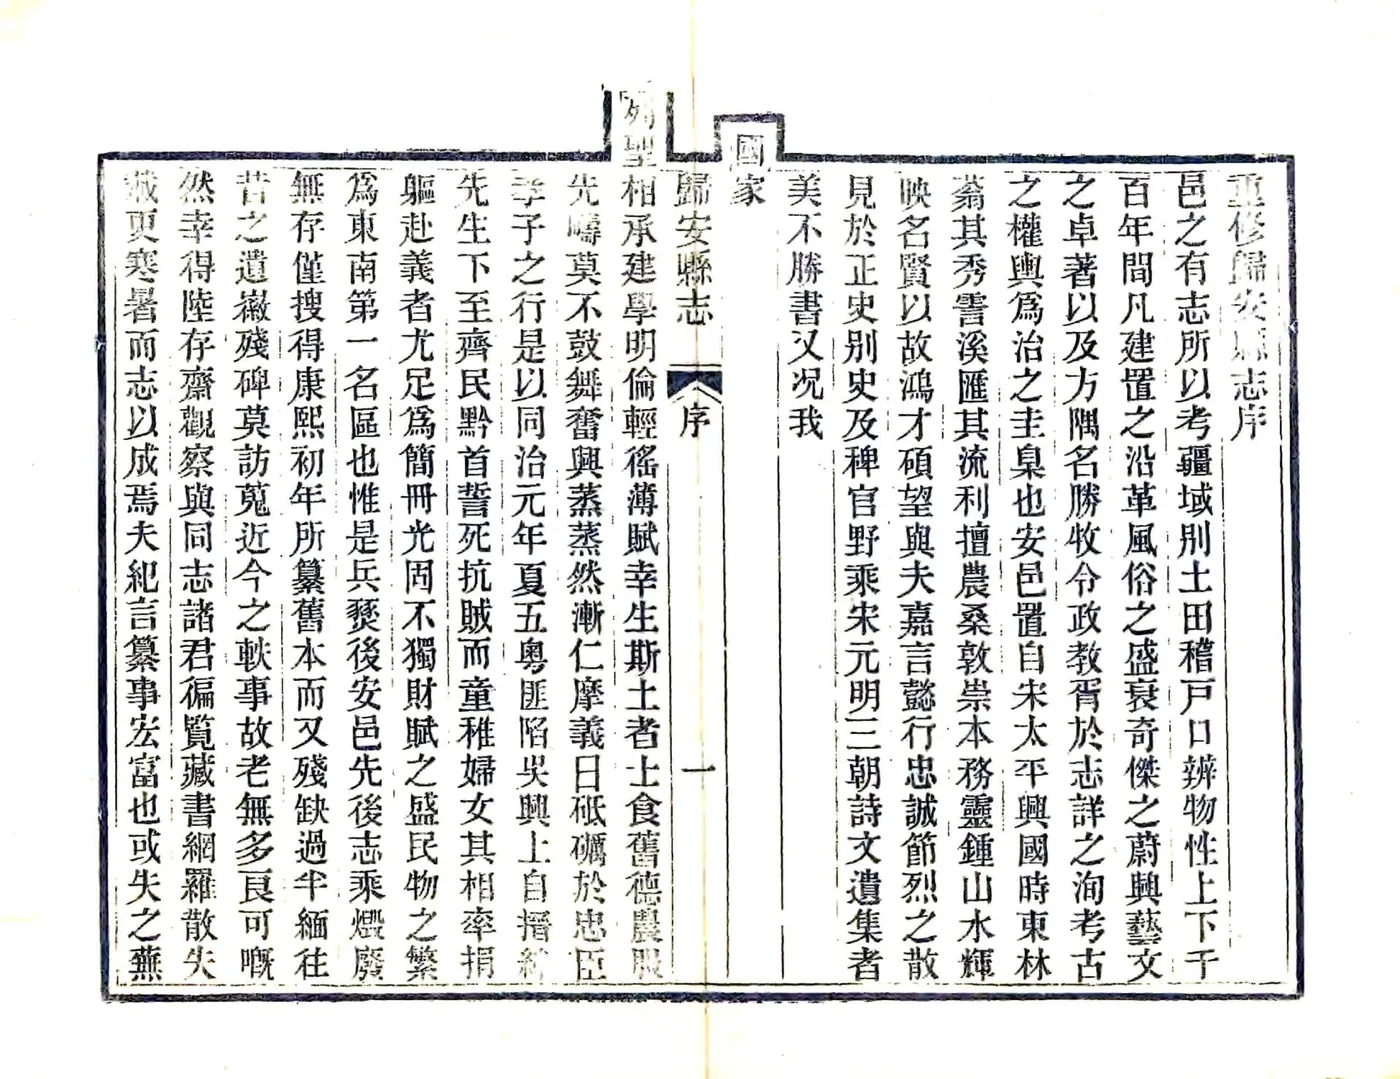 重修歸安縣志序
邑之有志所以考疆域別土田稽戸口辨物性上下千
百年間凡建置之沿革風俗之盛衰奇傑之蔚興藝文
之卓著以及方隅名勝牧令政教胥於志詳之洵考古
之權輿爲治之圭臬也安邑置自宋太平興國時東林
蓊其秀霅溪匯其流利擅農桑敦崇本務靈鍾山水輝
映名賢以故鴻才碩望與夫嘉言懿行忠誠節烈之散
見於正史別史及稗官野乘宋元明三朝詩文遺集者
美不勝書又况我
國家
歸安縣志
序
一
列聖相承建學明倫輕徭薄賦幸生斯土者士食舊德農服
先疇莫不鼓舞奮興蒸蒸然漸仁摩義日砥礪於忠臣
孝子之行是以同治元年夏五粵匪陷吳興上自搢紳
先生下至齊民黔首誓死抗賊而童稚婦女其相率捐
軀赴義者尤足爲簡冊光固不獨財賦之盛民物之繁
爲東南第一名區也惟是兵燹後安邑先後志乘燬廢
無存僅搜得康熙初年所纂舊本而又殘缺過半緬往
昔之遺徽殘碑莫訪蒐近今之軼事故老無多良可嘅
然幸得陸存齋觀察與同志諸君徧覽藏書網羅散失
歲更寒暑而志以成焉夫紀言纂事宏富也或失之蕪